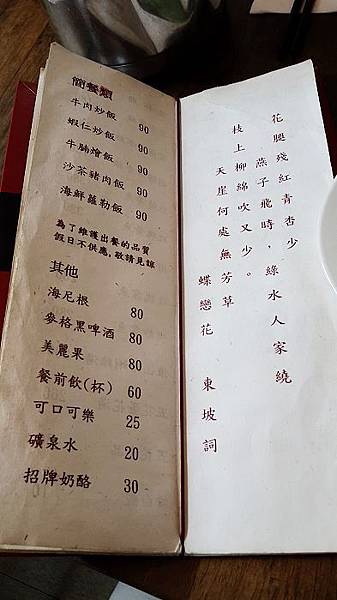 簡餐類
牛肉炒飯 90
蝦仁炒飯 90
牛腩燴飯 90
沙茶豬肉飯 90
海鮮蘿勒飯 90
為了維護出餐的品質
假日不供應,敬請見諒
其他
海尼根 80
麥格黑啤酒 80
美麗果 80
餐前飲(杯) 60
可口可樂 25
礦泉水 20
招牌奶酪 30
花腿殘紅青杏少
燕子飛時,綠水人家繞
枝上柳綿吹又少。
天崖何處無芳草
蝶戀花 東坡詞